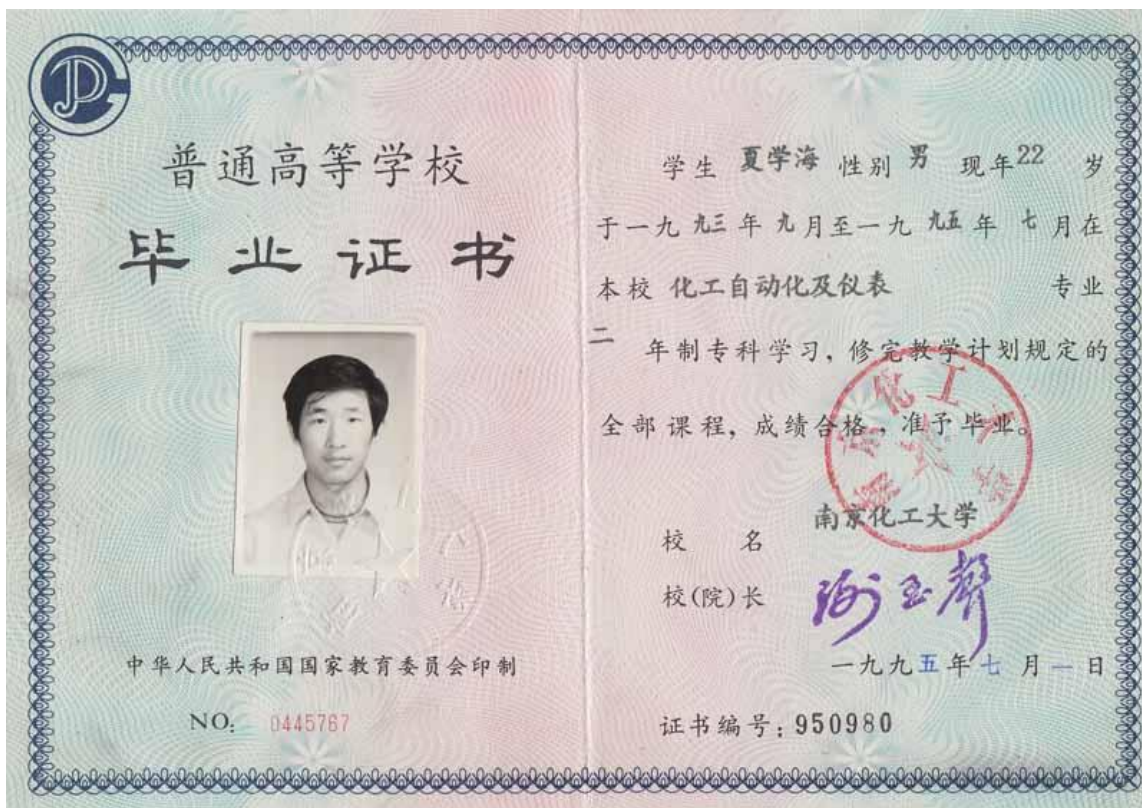 普通高等学校
毕业证书
中华人民共和国国家教育委员会印制
NO: 0445767
学生 夏学海 性别 男 现年22 岁
于一九九三年九月至一九九五年七月在
本校 化工自动化及仪表 专业
二 年制专科学习，修完教学计划规定的
全部课程，成绩合格，准予毕业。
南京化工大学
校 名
校(院)长
一九九五年七月一日
证书编号：950980